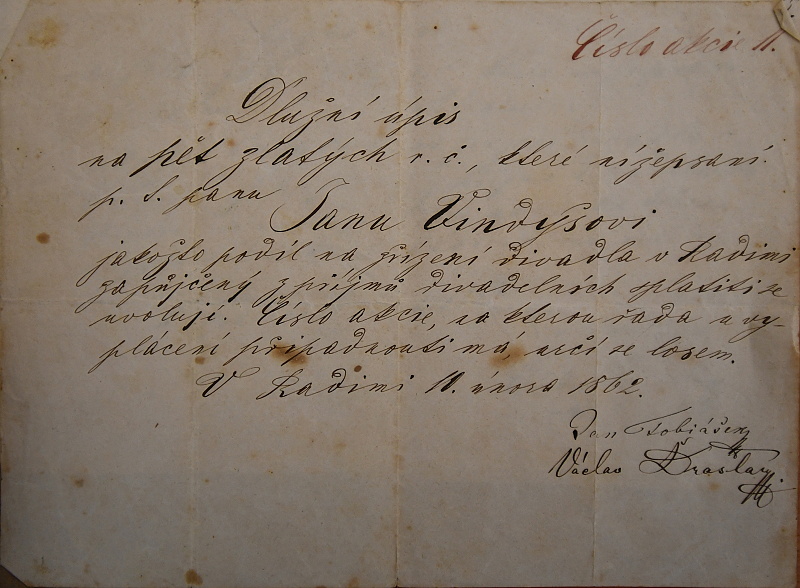 Číslo akcie 11.
Dlužní úpis
na pět zlatých r. č., které nížepsaní
p. t. panu
Janu Vindyšovi
jakožto podíl na zřízení divadla v Radimi
zapůjčený z příjmů divadelních splatiti se
uvolují. Číslo akcie, na kterou řada u vy-
plácení připadnouti má, určí se losem.
V Radimi 11. února 1862.
Jan Tobiášek
Václav